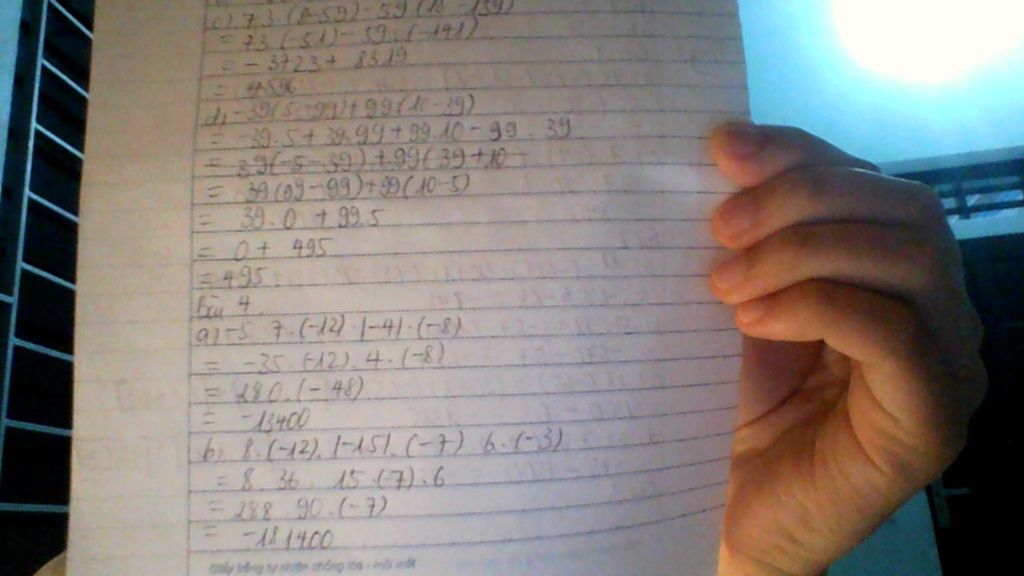 c) 73 (8-59) - 59 (18 - 159)
= 73 (-51) - 59. (-141)
= - 3723 + 8319
= 4596
d, -39(5-99) + 99(10-39)
= -39.5 + 39.99 + 99.10 - 99.39
= 39(-5-39) + 99(39+10
= 39(99-99) + 99(10-5)
= 39.0 + 99.5
= 0 + 495
= 495
Bài 4
a) -5 7.(-12).|-4|.(-8)
= -35.(-12).4.(-8)
= 280.(-48)
= -13400
b, 8.(-12).|-15|.(-7) 6.(-3)
= 8 36 15.(-7).6
= 288 90.(-7)
= -181400
Giấy trắng tự nhiên chống lóa - mỏi mắt